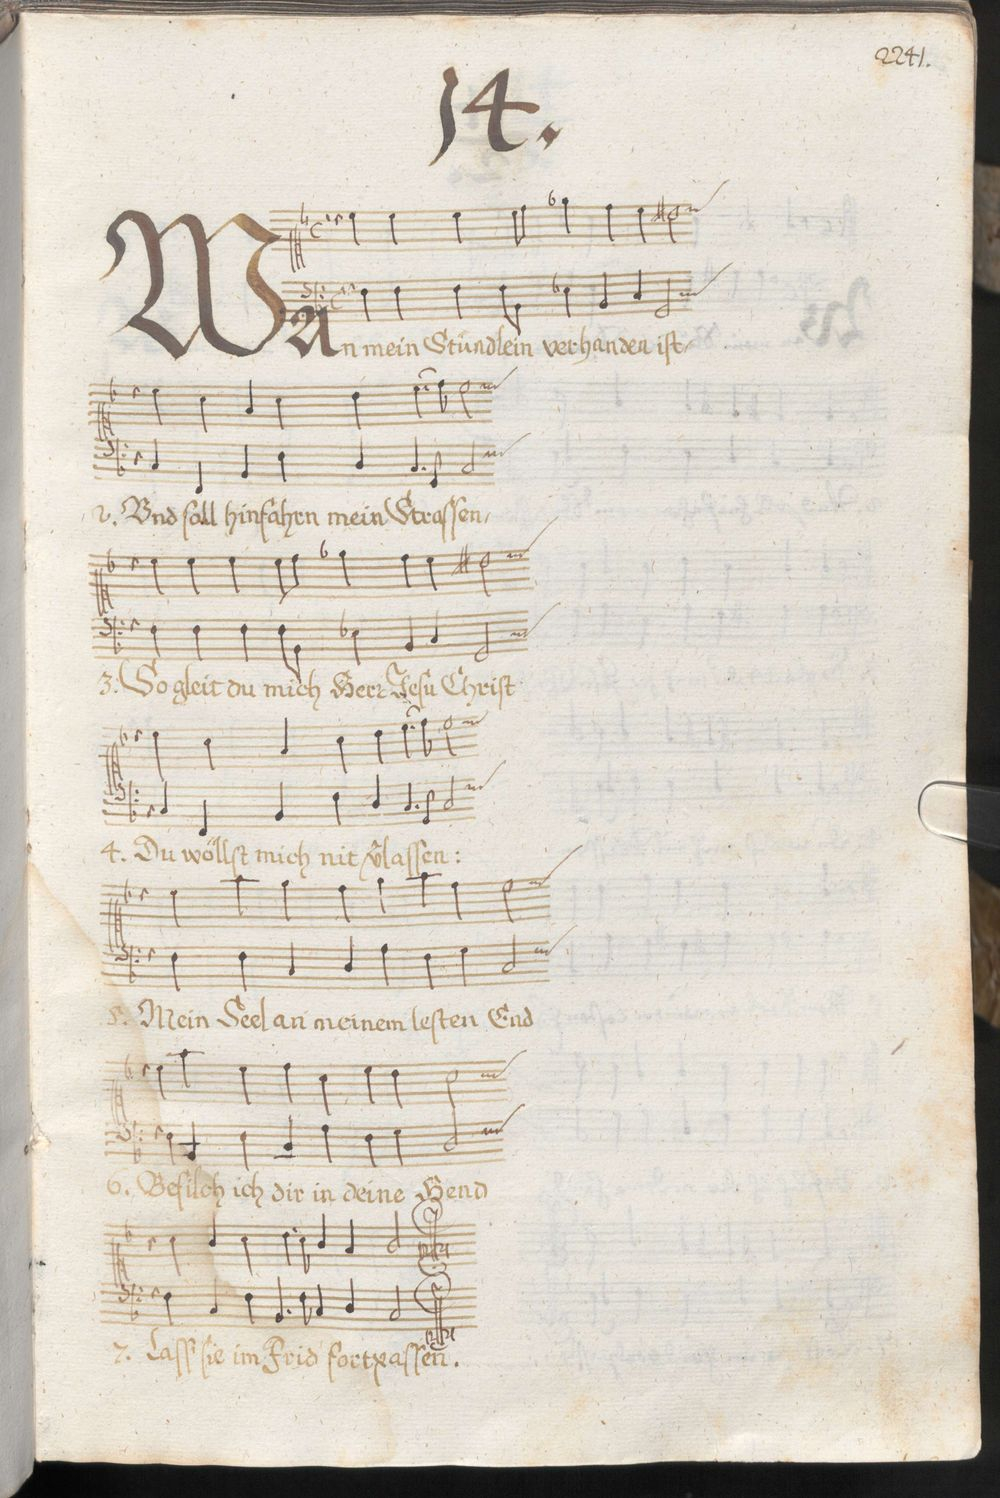 2241.
14.
Wan mein Stündlein verhanden ist/
2. Vnd soll hinfahrn mein Strassen/
3. So gleit du mich Herr Jesu Christ
4. Du wöllst mich nit v̄lassen:
5. Mein Seel an meinem lesten End
6. Befilch ich dir in deine Hend
7. Lass sie im Frid fortpassen.